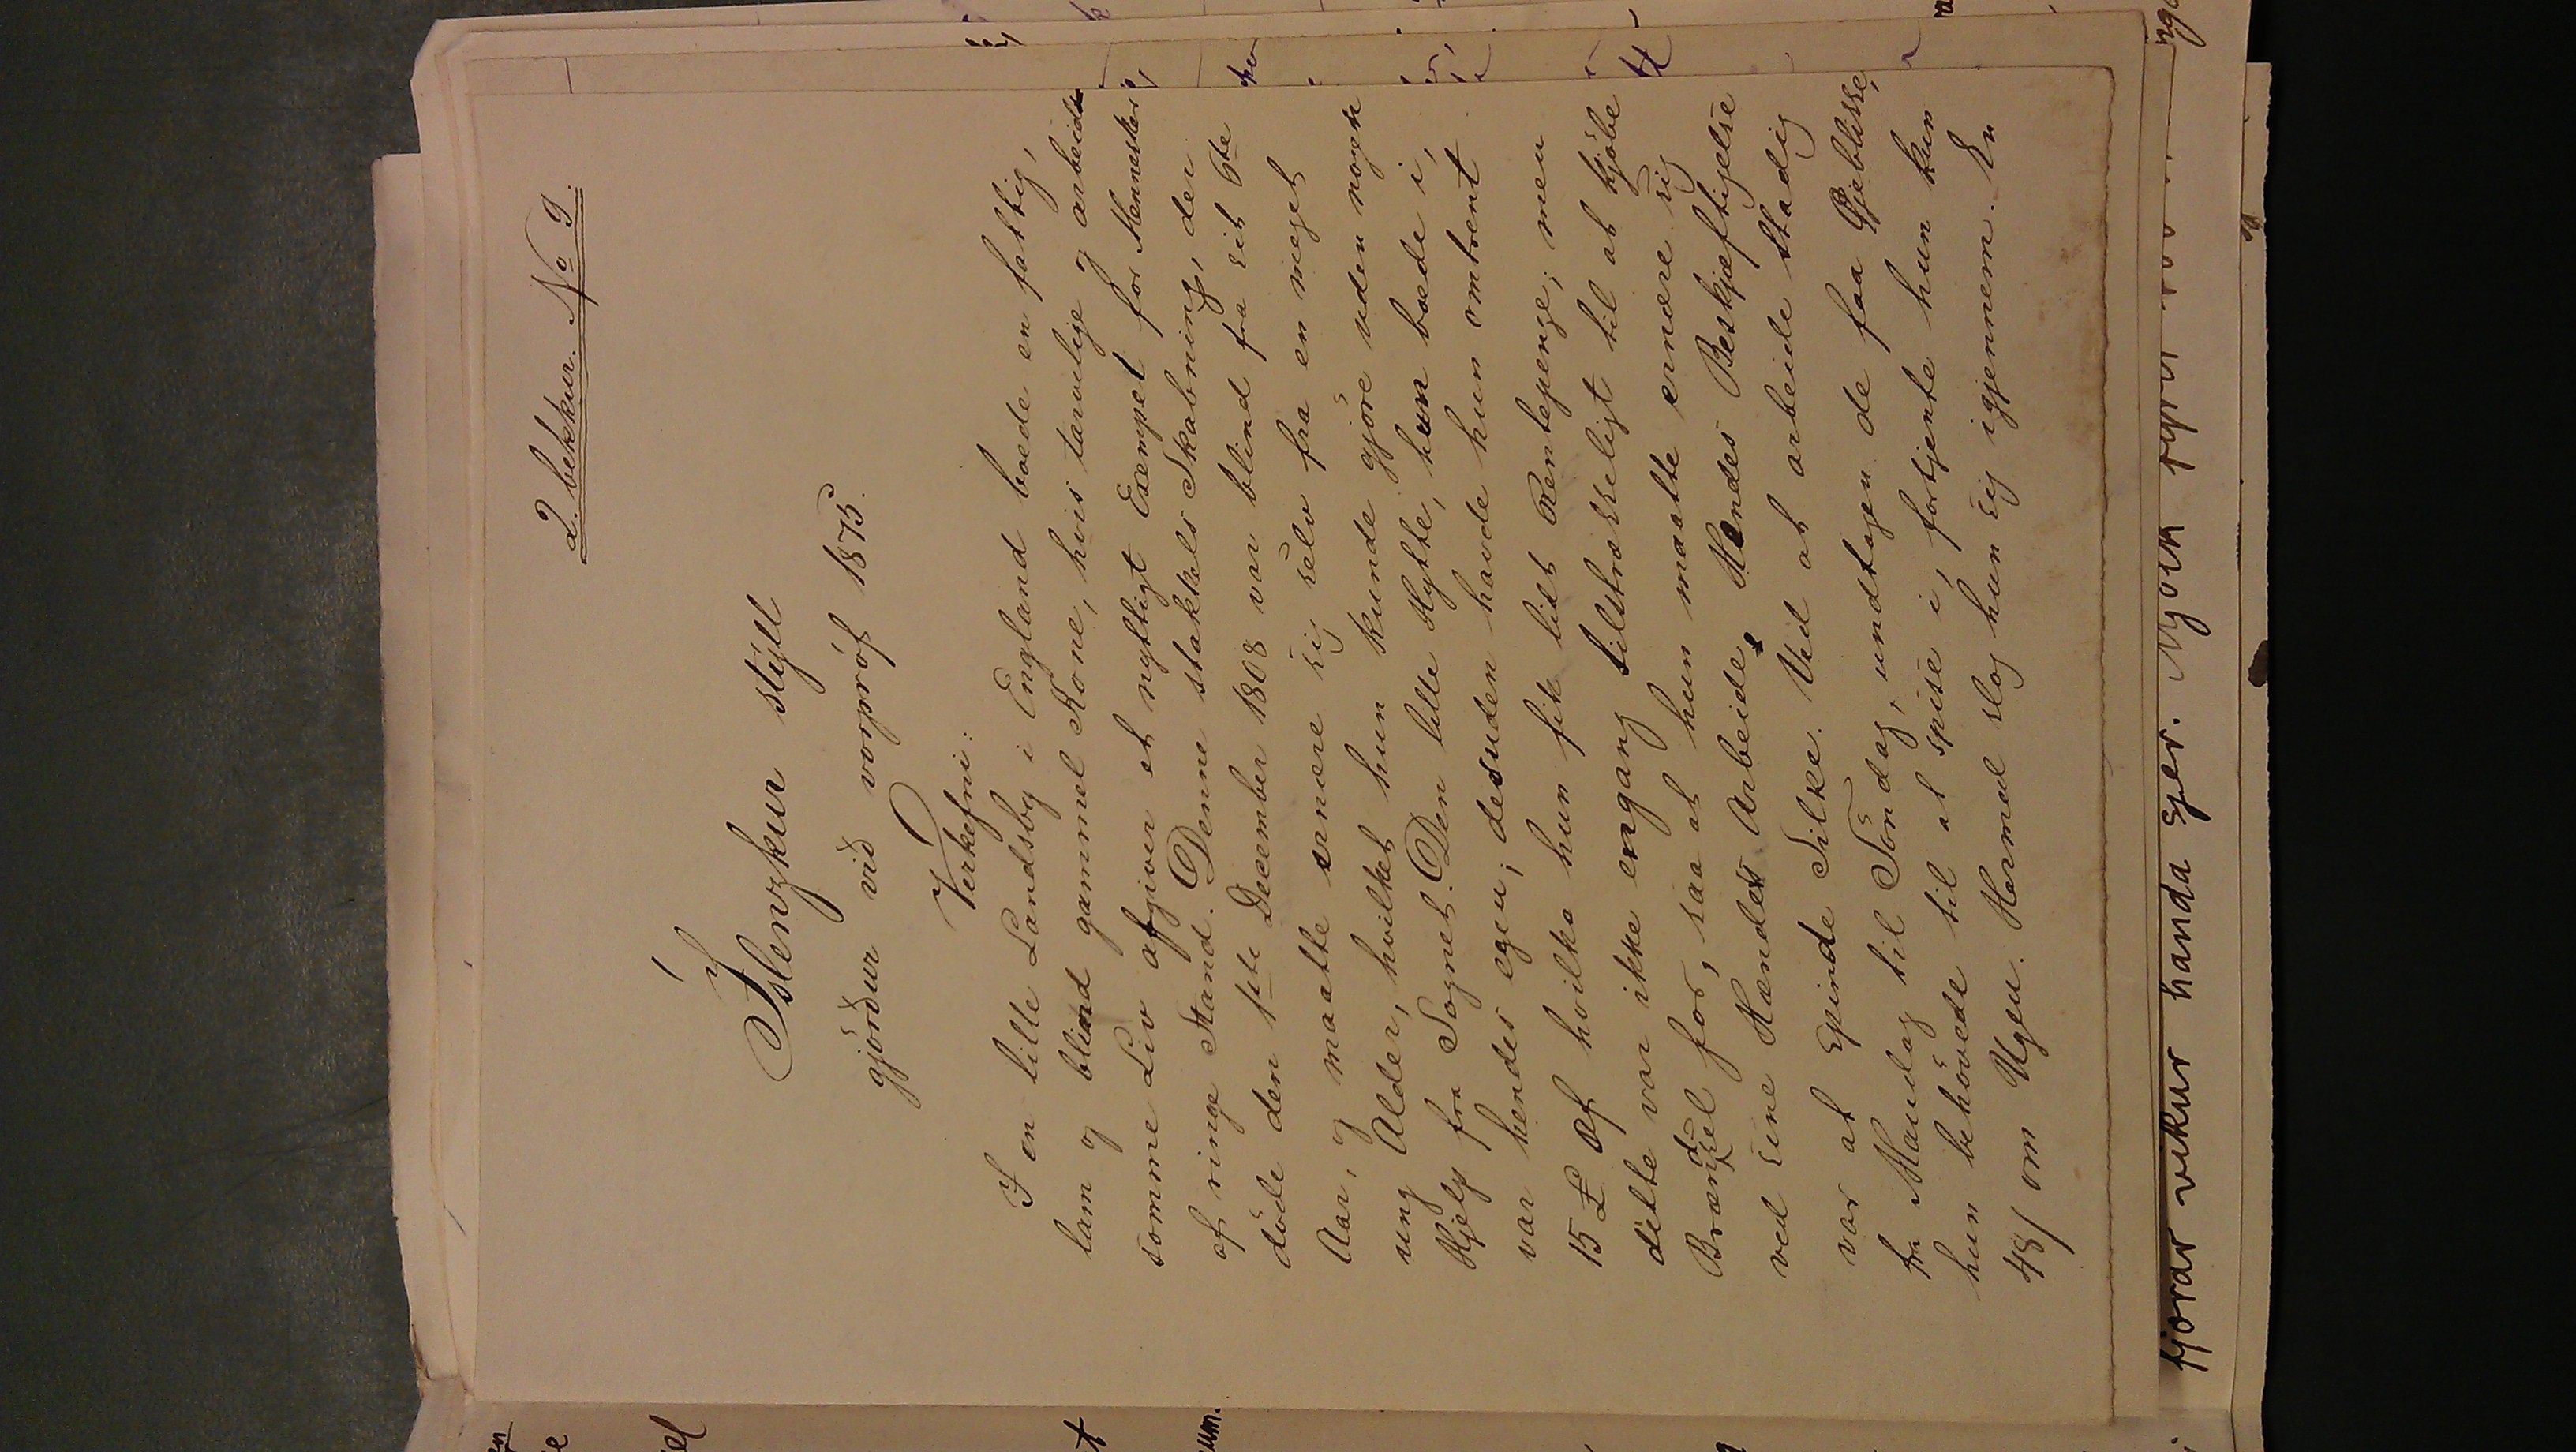 2. bekkur. No 9.
Íslenzkur stýll
gjörður við vorpróf 1875.
Verkefni:
I en lille Landsby i England boede en fattig,
lam og blind gammel Kone, hvis tarvelige og arbeids
somme Liv afgiver et nyttigt Exempel for Mennesker
af ringe Stand. Denne stakkels Skabning, der
döde den 1ste December 1808 var blind fra sit 6te
Aar, og maatte ernære sig selv fra en meget
ung Alder, hvilket hun kunde gjöre uden nogen
Hjelp fra Sognet. Den lille Hytte, hun boede i,
var hendes egen; desuden havde hun omtrent
15 £ af hvilke hun fik lidt Rentepenge; men
dette var ikke engang tilstrækkeligt til at kjöbe
Brændsel for, saa at hun maatte ernære sig
ved sine Hænders Arbeide. Hendes Beskjæftigelse
var at spinde Silke. Ved at arbeide stadig
fra Mandag til Söndag, undtagen de faa Öjeblikke,
hun behövede til at spise i, fortjente hun kun
48/ om Ugen. Hermed slog hun sig igjennem. En
fjórar vikur handa sjer.